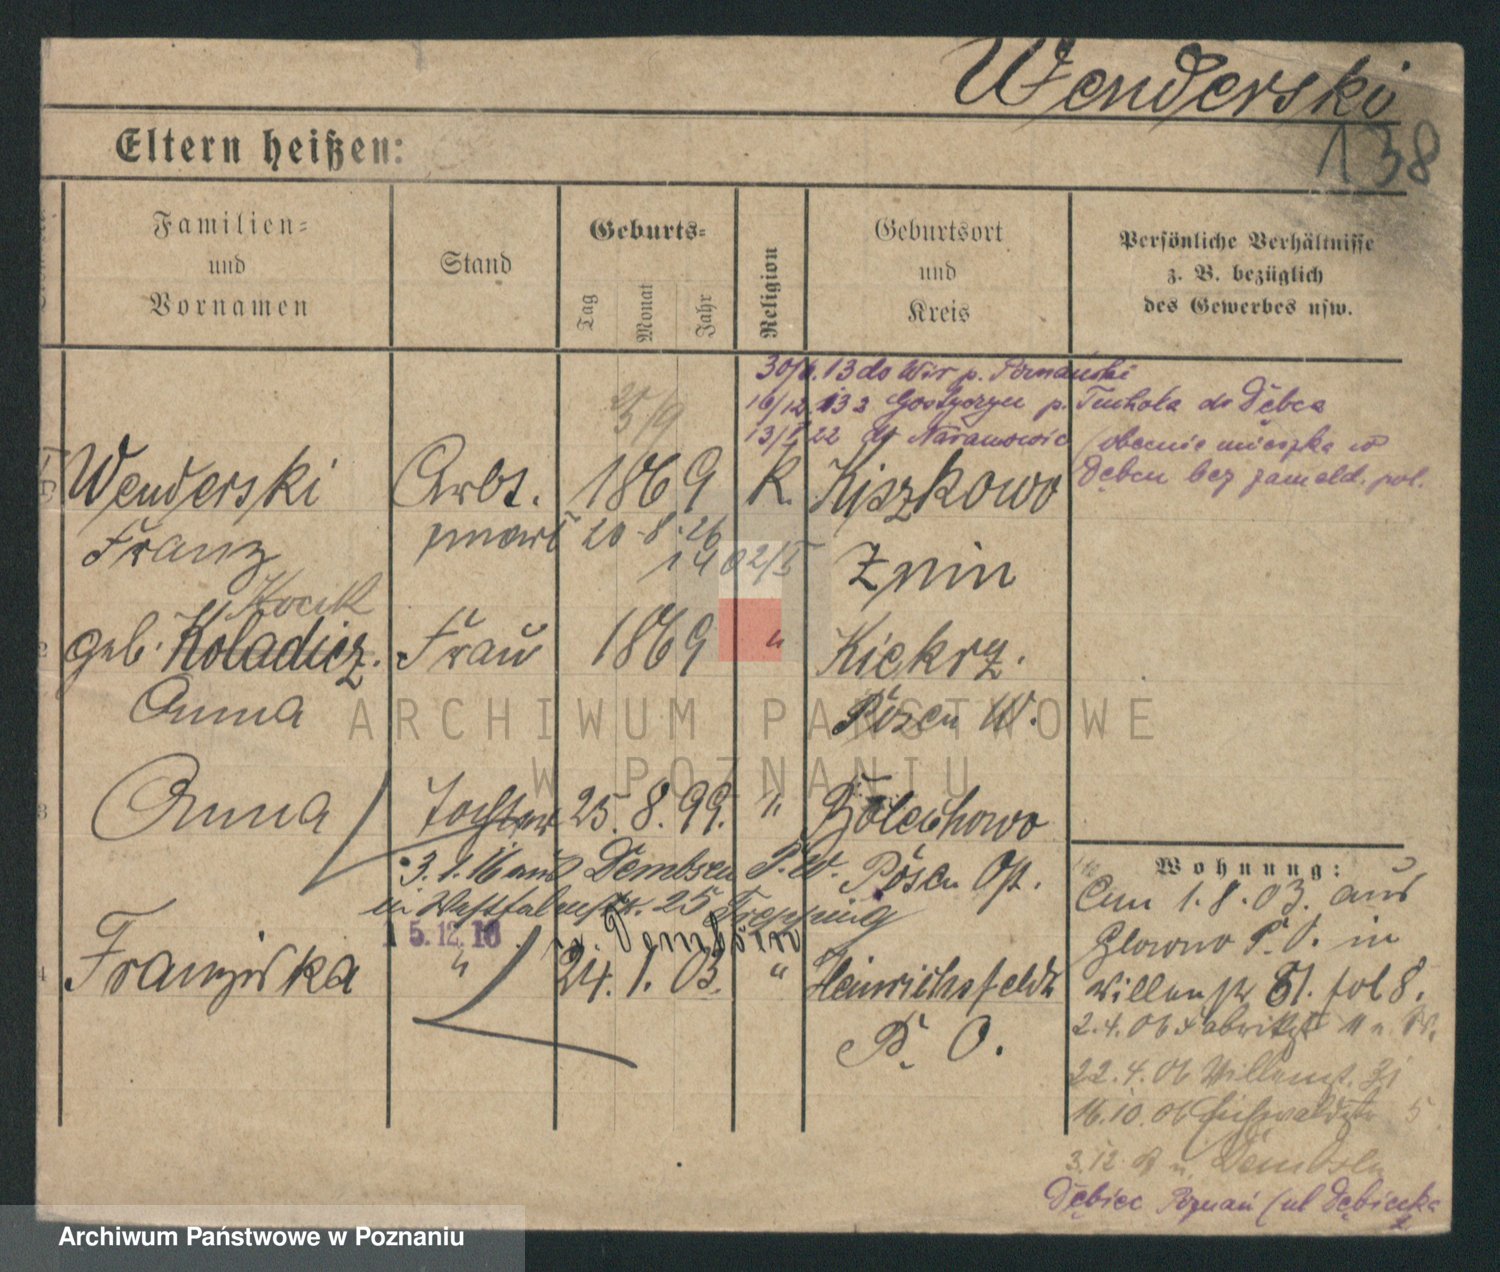 Wenderski
138
Eltern heißen:
Familien=
und
Vornamen
Stand
Geburts=
Tag
Monat
Jahr
Religion
Geburtsort
und
Kreis
Persönliche Verhältnisse
z. B. bezüglich
des Gewerbes usw.
30/6.13 do Wir p. Poznański
16/12 13 z Gostyczyn p. Tuchola do Dębca
13/5 22 do Naramowic (obecnie mieszka w
Dębcu bez zameld. pol.
25/9
Wenderski Arbt. 1869 K. Kiszkowo
Franz zmarł 20-8-26 Znin
1402/5
Kocik
2 geb. Koladicz. Frau 1869 " Kiekrz.
Anna Posen W.
3 Anna Tochter 25.8.99. " Bolechowo
3.1.16 aus Dembsen P.W. Posen Ost.
in 25
15.12.16 n. Dembsen
4 Franziska " 24.1.03. " Heinrichsfelde
P. O.
Wohnung:
Am 1.8.03. aus
Glowno P. O. in
Willenstr 51. fol 8.
2.4.06
22.4.06
16.10.06 Eichwaldstr 5
3.12 n. Dembsen
Dębiec Poznań (ul Dębiecka
ARCHIWUM PAŃSTWOWE
W POZNANIU
Archiwum Państwowe w Poznaniu